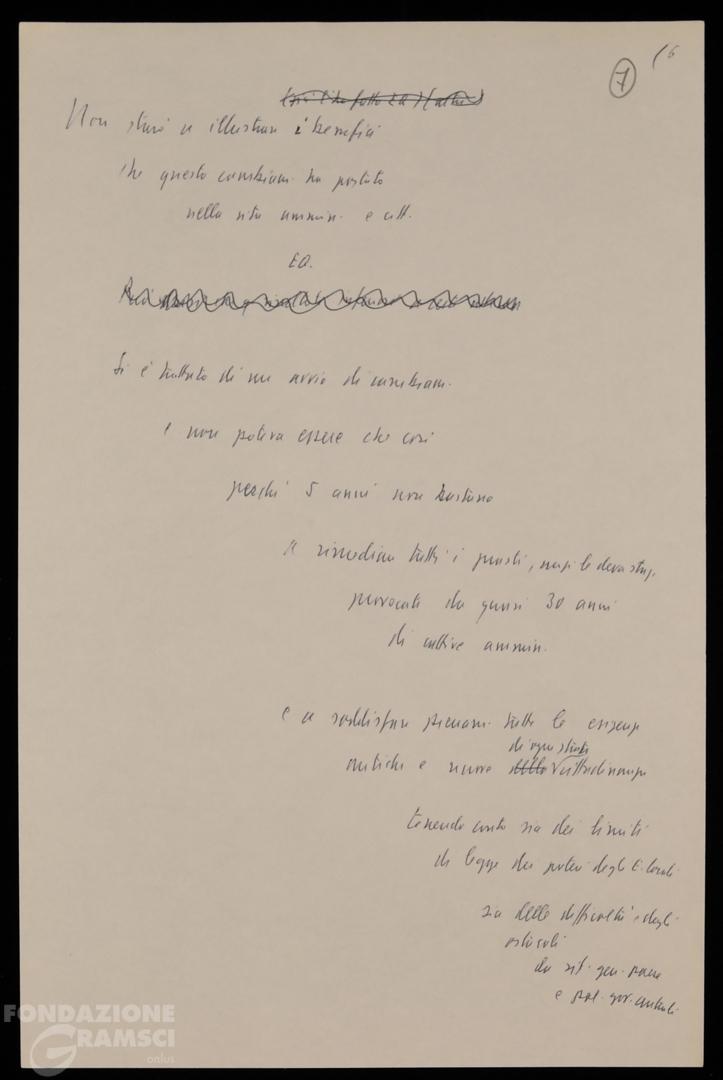 7
Non starò a illustrare i benefici
che questo cambiam. ha portato
nella vita ammin. e citt.
EQ.
Si è trattato di un avvio di cambiam.
e non poteva essere che così
perché 5 anni non bastano
a rimediare tutti i guasti, anzi le devastaz.
provocati da quasi 30 anni
di cattive ammin.
e a soddisfare pienam. tutte le esigenze
di ogni strato
antiche e nuove della cittadinanza
tenendo conto sia dei limiti
di legge dei poteri degli E. locali
sia delle difficoltà e degli
ostacoli
da sit. gen. paese
e pol. gov. centrali
FONDAZIONE
GRAMSCI
onlus